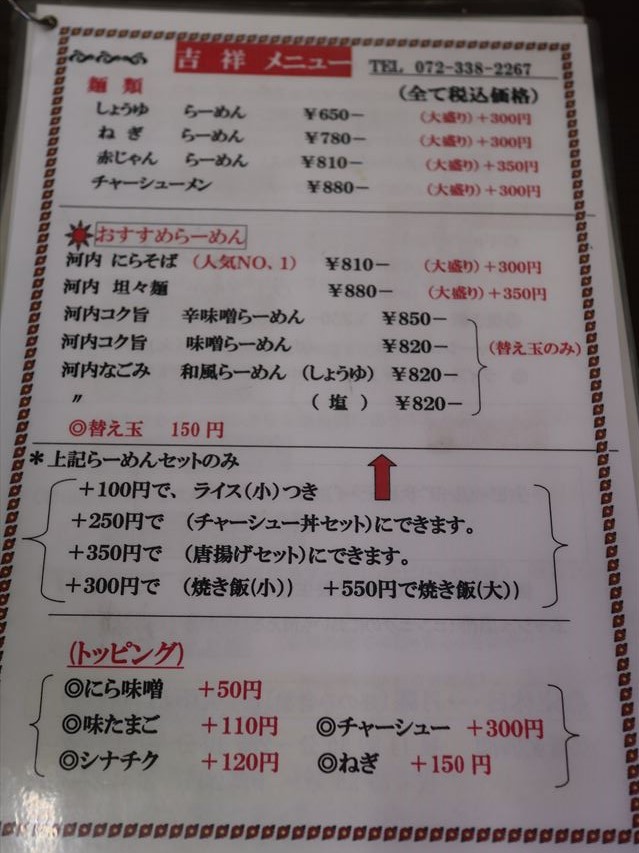 吉祥 メニュー TEL 072-338-2267
麺類 (全て税込価格)
しょうゆ らーめん ￥650- (大盛り)+300円
ねぎ らーめん ￥780- (大盛り)+300円
赤じゃん らーめん ￥810- (大盛り)+350円
チャーシューメン ￥880- (大盛り)+300円
おすすめらーめん
河内 にらそば (人気NO、1) ￥810- (大盛り)+300円
河内 坦々麺 ￥880- (大盛り)+350円
河内コク旨 辛味噌らーめん ￥850-
河内コク旨 味噌らーめん ￥820- (替え玉のみ)
河内なごみ 和風らーめん (しょうゆ) ￥820-
〃 (塩) ￥820-
◎替え玉 150円
＊上記らーめんセットのみ
+100円で、ライス(小)つき
+250円で (チャーシュー丼セット)にできます。
+350円で (唐揚げセット)にできます。
+300円で (焼き飯(小)) +550円で焼き飯(大))
(トッピング)
◎にら味噌 +50円
◎味たまご +110円 ◎チャーシュー +300円
◎シナチク +120円 ◎ねぎ +150円